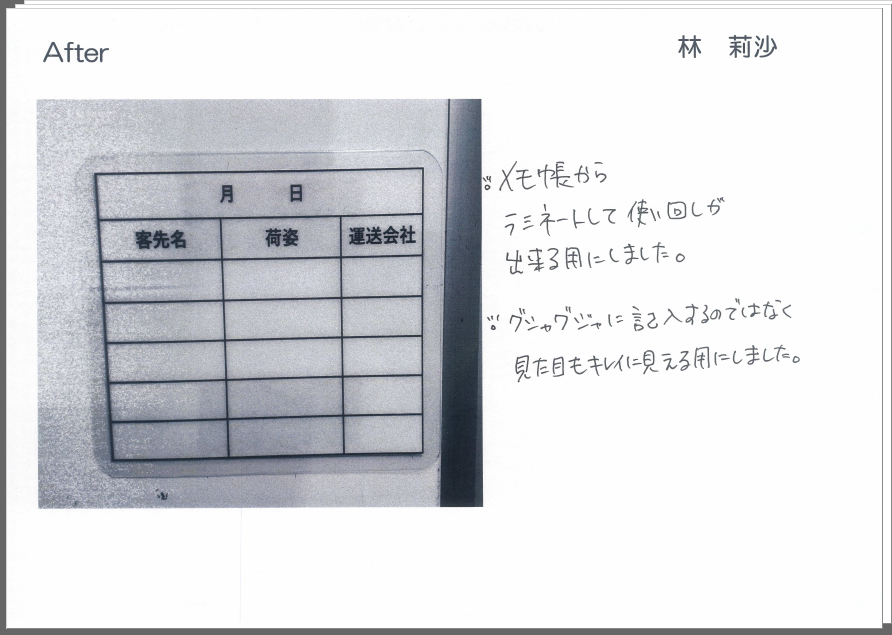 After
林　莉沙
月　日
客先名　荷姿　運送会社
メモ帳から
ラミネートして使い回しが
出来る用にしました。
グジャグジャに記入するのではなく
見た目もキレイに見える用にしました。